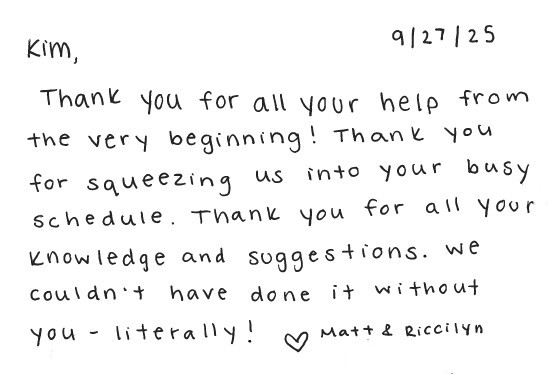 9/27/25
Kim,
Thank you for all your help from
the very beginning! Thank you
for squeezing us into your busy
schedule. Thank you for all your
knowledge and suggestions. We
couldn't have done it without
you - literally! ♡ Matt & Riccilyn